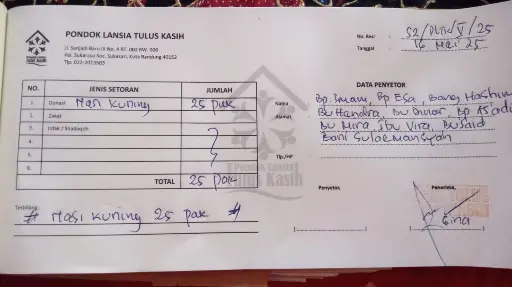 PONDOK LANSIA TULUS KASIH
Jl. Sarijadi Baru III No. 4 RT. 002 RW. 006
Kel. Sukarasa Kec. Sukasari, Kota Bandung 40152
Tlp. 022-2013503
No. Resi : 52/PLTK/V/25
Tanggal : 16 Mei 25
NO. JENIS SETORAN JUMLAH
1. Donasi Nasi kuning 25 pak
2. Zakat
3. Infak / Shadaqoh
4.
5.
6.
TOTAL 25 pak
DATA PENYETOR
Nama Bp. Imam, Bp Esa, Bang Hashim
Alamat Bu Hendra, Bu Dinar, Bp Asadi
Bu Mira, Ibu Vira, Bu Said
Bani Sulaemansyah
Tlp./HP
Terbilang:
# Nasi kuning 25 pak #
Penyetor, Penerima,
Gina
Pondok Lansia
Tulus Kasih
Pondok Lansia
Tulus Kasih